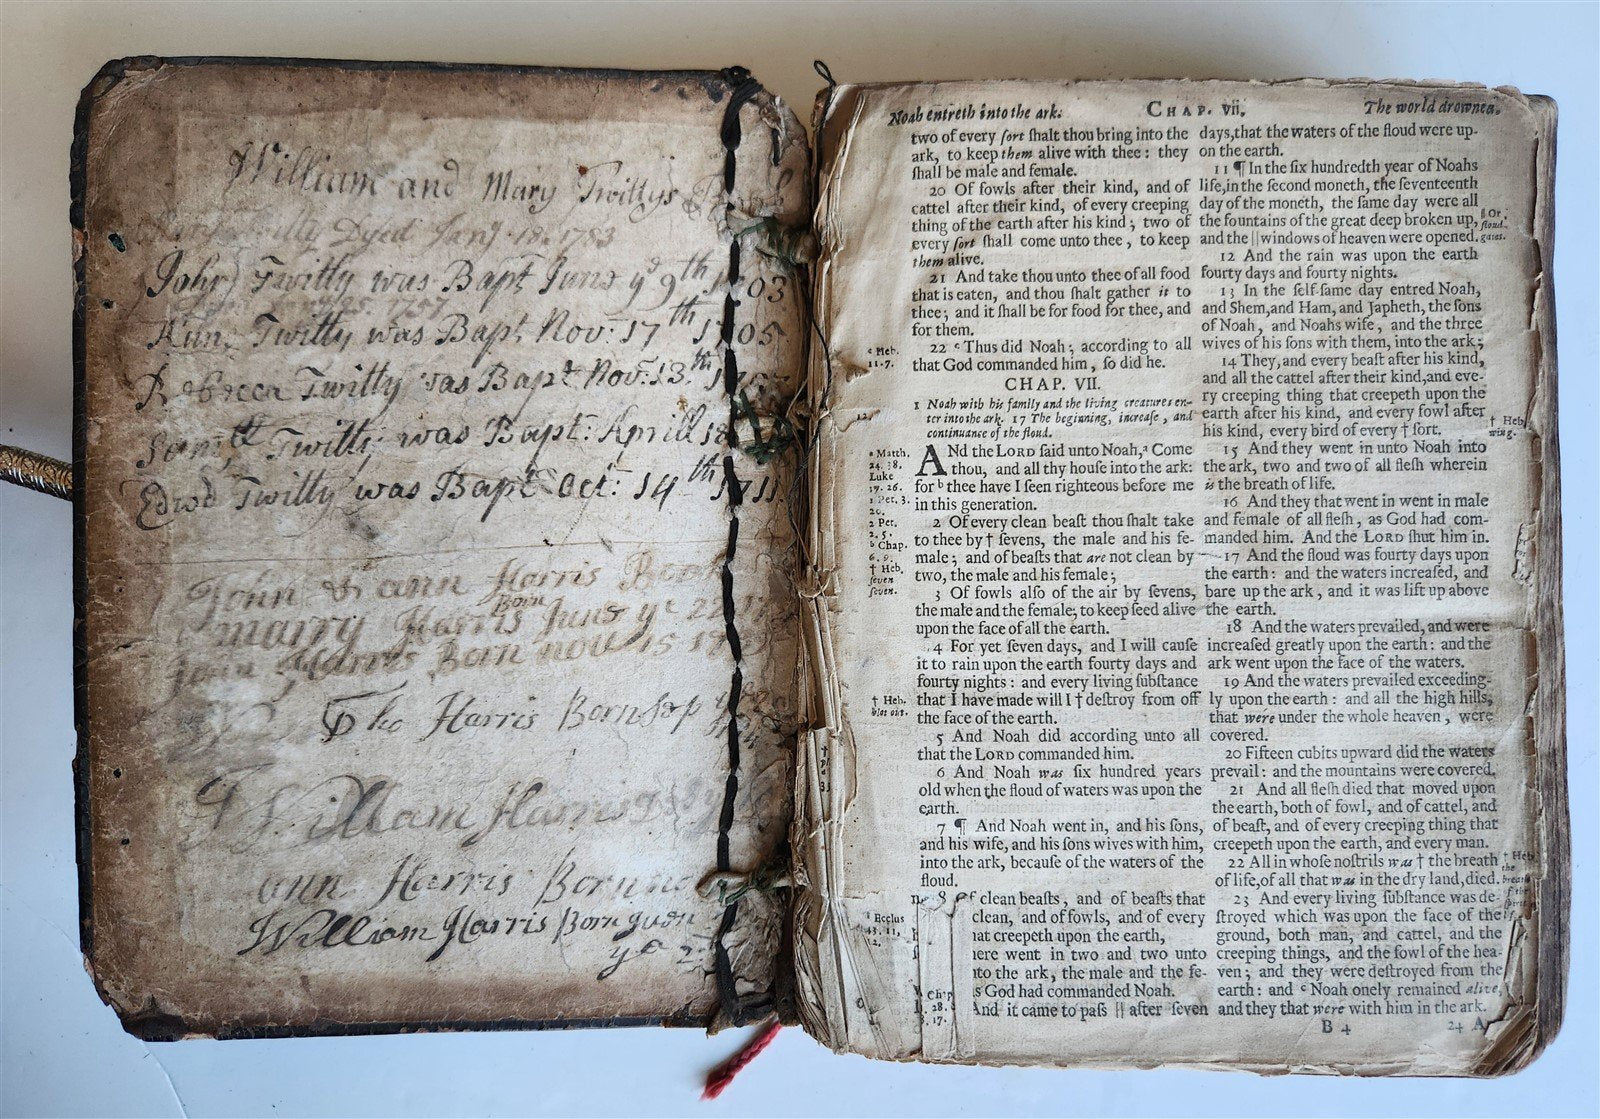 William and Mary Twittys
Dyed Janʸ 18. 1783
John Twitty was Bapt June yᵉ 9ᵗʰ 1703
25. 1757
Twitty was Bapt Nov: 17ᵗʰ 1705
Rebecca Twitty was Bapt Nov: 13ᵗʰ
Samˡˡ Twitty was Bapt: Aprill 18
Edwd Twitty was Bapt Oct: 14ᵗʰ 1711
John & ann Harris Book
marry Harris Born June yᵉ 22
John Harris Born nov 15
Tho Harris Born Sep
William Harris
ann Harris Born no
William Harris Born
yᵉ 2
Noah entreth into the ark. CHAP. vii. The world drowned.
two of every ſort ſhalt thou bring into the
ark, to keep them alive with thee: they
ſhall be male and female.
20 Of fowls after their kind, and of
cattel after their kind, of every creeping
thing of the earth after his kind; two of
every ſort ſhall come unto thee, to keep
them alive.
21 And take thou unto thee of all food
that is eaten, and thou ſhalt gather it to
thee; and it ſhall be for food for thee, and
for them.
22 ᶜ Thus did Noah; according to all
that God commanded him, ſo did he.
CHAP. VII.
1 Noah with his family and the living creatures en-
ter into the ark. 17 The beginning, increaſe, and
continuance of the floud.
ANd the LORD ſaid unto Noah,ᵃ Come
thou, and all thy houſe into the ark:
for ᵇ thee have I ſeen righteous before me
in this generation.
2 Of every clean beaſt thou ſhalt take
to thee by † ſevens, the male and his fe-
male; and of beaſts that are not clean by
two, the male and his female;
3 Of fowls alſo of the air by ſevens,
the male and the female; to keep ſeed alive
upon the face of all the earth.
4 For yet ſeven days, and I will cauſe
it to rain upon the earth fourty days and
fourty nights: and every living ſubſtance
that I have made will I † deſtroy from off
the face of the earth.
5 And Noah did according unto all
that the LORD commanded him.
6 And Noah was ſix hundred years
old when the floud of waters was upon the
earth.
7 ¶ And Noah went in, and his ſons,
and his wife, and his ſons wives with him,
into the ark, becauſe of the waters of the
floud.
8 Of clean beaſts, and of beaſts that
clean, and of fowls, and of every
hat creepeth upon the earth,
here went in two and two unto
nto the ark, the male and the fe-
s God had commanded Noah.
And it came to paſs || after ſeven
ᶜ Heb.
11. 7.
12.
ᵃ Matth.
24. 38.
Luke
17. 26.
1 Pet. 3.
20.
2 Pet.
2. 5.
ᵇ Chap.
6. 9.
† Heb.
ſeven
ſeven.
† Heb.
blot out.
Ecclus
Chap
28.
17.
days, that the waters of the floud were up-
on the earth.
11 ¶ In the ſix hundredth year of Noahs
life, in the ſecond moneth, the ſeventeenth
day of the moneth, the ſame day were all
the fountains of the great deep broken up,
and the || windows of heaven were opened.
12 And the rain was upon the earth
fourty days and fourty nights.
13 In the ſelf-ſame day entred Noah,
and Shem, and Ham, and Japheth, the ſons
of Noah, and Noahs wife, and the three
wives of his ſons with them, into the ark;
14 They, and every beaſt after his kind,
and all the cattel after their kind, and eve-
ry creeping thing that creepeth upon the
earth after his kind, and every fowl after
his kind, every bird of every † ſort.
15 And they went in unto Noah into
the ark, two and two of all fleſh wherein
is the breath of life.
16 And they that went in went in male
and female of all fleſh, as God had com-
manded him. And the LORD ſhut him in.
17 And the floud was fourty days upon
the earth: and the waters increaſed, and
bare up the ark, and it was lift up above
the earth.
18 And the waters prevailed, and were
increaſed greatly upon the earth: and the
ark went upon the face of the waters.
19 And the waters prevailed exceeding-
ly upon the earth: and all the high hills,
that were under the whole heaven, were
covered.
20 Fifteen cubits upward did the waters
prevail: and the mountains were covered.
21 And all fleſh died that moved upon
the earth, both of fowl, and of cattel, and
of beaſt, and of every creeping thing that
creepeth upon the earth, and every man.
22 All in whoſe noſtrils was † the breath
of life, of all that was in the dry land, died.
23 And every living ſubſtance was de-
ſtroyed which was upon the face of the
ground, both man, and cattel, and the
creeping things, and the fowl of the hea-
ven; and they were deſtroyed from the
earth: and ᶜ Noah onely remained alive,
and they that were with him in the ark.
|| Or
floud-
gates.
† Heb
wing.
† Heb
the
breath
B 4
24 A